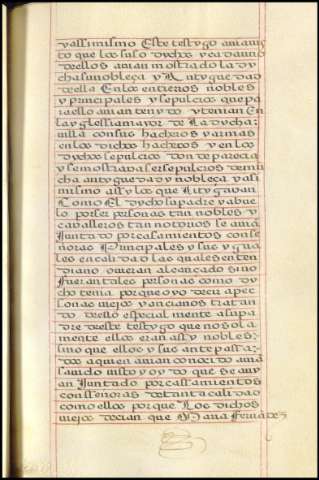 y assimismo Este testygo avia vis
to que los suso dychos y cada uno
dellos avian mostrado la dy
cha su nobleça y Antyguedad
de ella En los entieros nobles
y principales y sepulcros que pa
ra ello avian tenydo y tenian En
la yglessia mayor de la dycha
villa con sus hacheros y armas
en los dichos hacheros y en los
dychos sepulcros donde parecia
y se mostrava ser sepulcros de mu
cha antyguedad y nobleça y asi
mismo assy los que litygavan
como El dycho su padre y abue
lo por ser personas tan nobles y
cavalleros tan notorios se avian
Juntado por casamientos con se
ñoras Principales y sus ygua
les en calidad las quales enten
dia no ovieran alcançado si no
fueran tales personas como dy
cho tenia porque oyo decir a per
sonas viejos y ancianos tratan
do dello especialmente a su pa
dre deste testygo que no sola
mente ellos eran assy nobles
sino que ellos y sus antepasa
dos a quien avian conocido avia
savido visto y oydo que se avy
an Juntado por cassamientos
con señoras de tanta calidad
como ellos porque Los dichos
viejos decian que Dana Fernandez